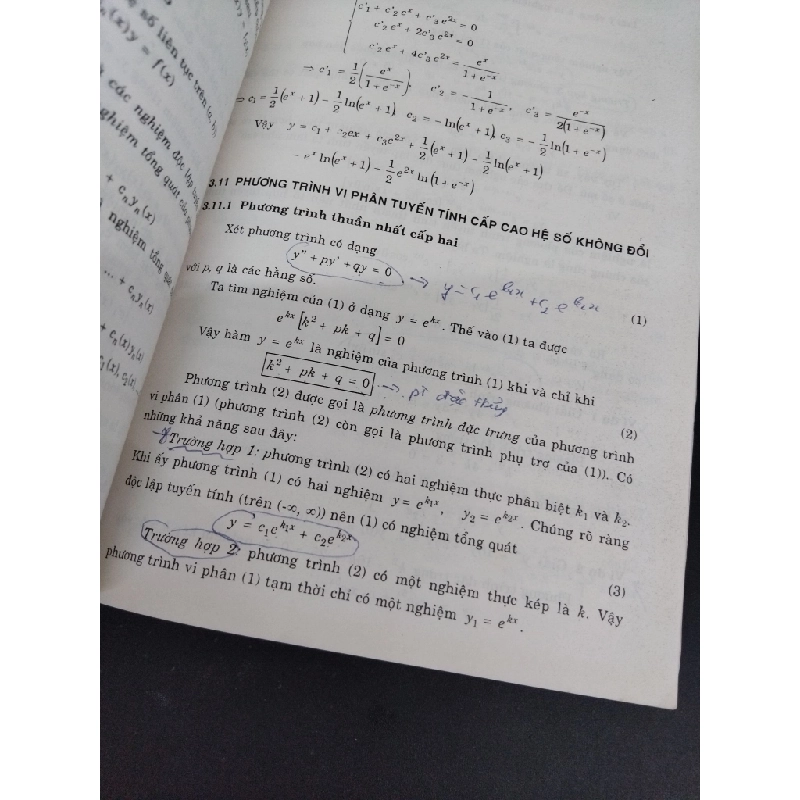 số liên tục trên (a, b)
(x)y = f(x)
các nghiệm độc lập
nghiệm tổng quát của
+ cₙyₙ(x)
nghiệm tổng quát
... + cₙyₙ(x)
+ cₙ(x)yₙ(x)
c'₁ + c'₂eˣ + c'₃e²ˣ = 0
c'₂eˣ + 2c'₃e²ˣ = 0
c'₂eˣ + 4c'₃e²ˣ = eˣ/(1+e⁻ˣ)
⇒ c'₁ = 1/2 (eˣ/(1+e⁻ˣ)), c'₂ = - 1/(1+e⁻ˣ), c'₃ = e⁻ˣ/(2(1+e⁻ˣ))
⇒ c₁ = 1/2(eˣ + 1) - 1/2 ln(eˣ + 1), c₂ = - ln(eˣ + 1), c₃ = - 1/2 ln(1 + e⁻ˣ)
Vậy y = c₁ + c₂ex + c₃e²ˣ + 1/2(eˣ + 1) - 1/2 ln(eˣ + 1)
- eˣ ln(eˣ + 1) - 1/2 e²ˣ ln(1 + e⁻ˣ)
3.11 PHƯƠNG TRÌNH VI PHÂN TUYẾN TÍNH CẤP CAO HỆ SỐ KHÔNG ĐỔI
3.11.1 Phương trình thuần nhất cấp hai
Xét phương trình có dạng
y'' + py' + qy = 0 → y = c₁e^(k₁x) + c₂e^(k₂x) (1)
với p, q là các hằng số.
Ta tìm nghiệm của (1) ở dạng y = eᵏˣ. Thế vào (1) ta được
eᵏˣ[k² + pk + q] = 0
Vậy hàm y = eᵏˣ là nghiệm của phương trình (1) khi và chỉ khi
k² + pk + q = 0 → (2)
Phương trình (2) được gọi là phương trình đặc trưng của phương trình
vi phân (1) (phương trình (2) còn gọi là phương trình phụ trợ của (1)). Có
những khả năng sau đây:
Trường hợp 1: phương trình (2) có hai nghiệm thực phân biệt k₁ và k₂.
Khi ấy phương trình (1) có hai nghiệm y = e^(k₁x), y₂ = e^(k₂x). Chúng rõ ràng
độc lập tuyến tính (trên (-∞, ∞)) nên (1) có nghiệm tổng quát
y = c₁e^(k₁x) + c₂e^(k₂x) (3)
Trường hợp 2: phương trình (2) có một nghiệm thực kép là k. Vậy
phương trình vi phân (1) tạm thời chỉ có một nghiệm y₁ = eᵏˣ.